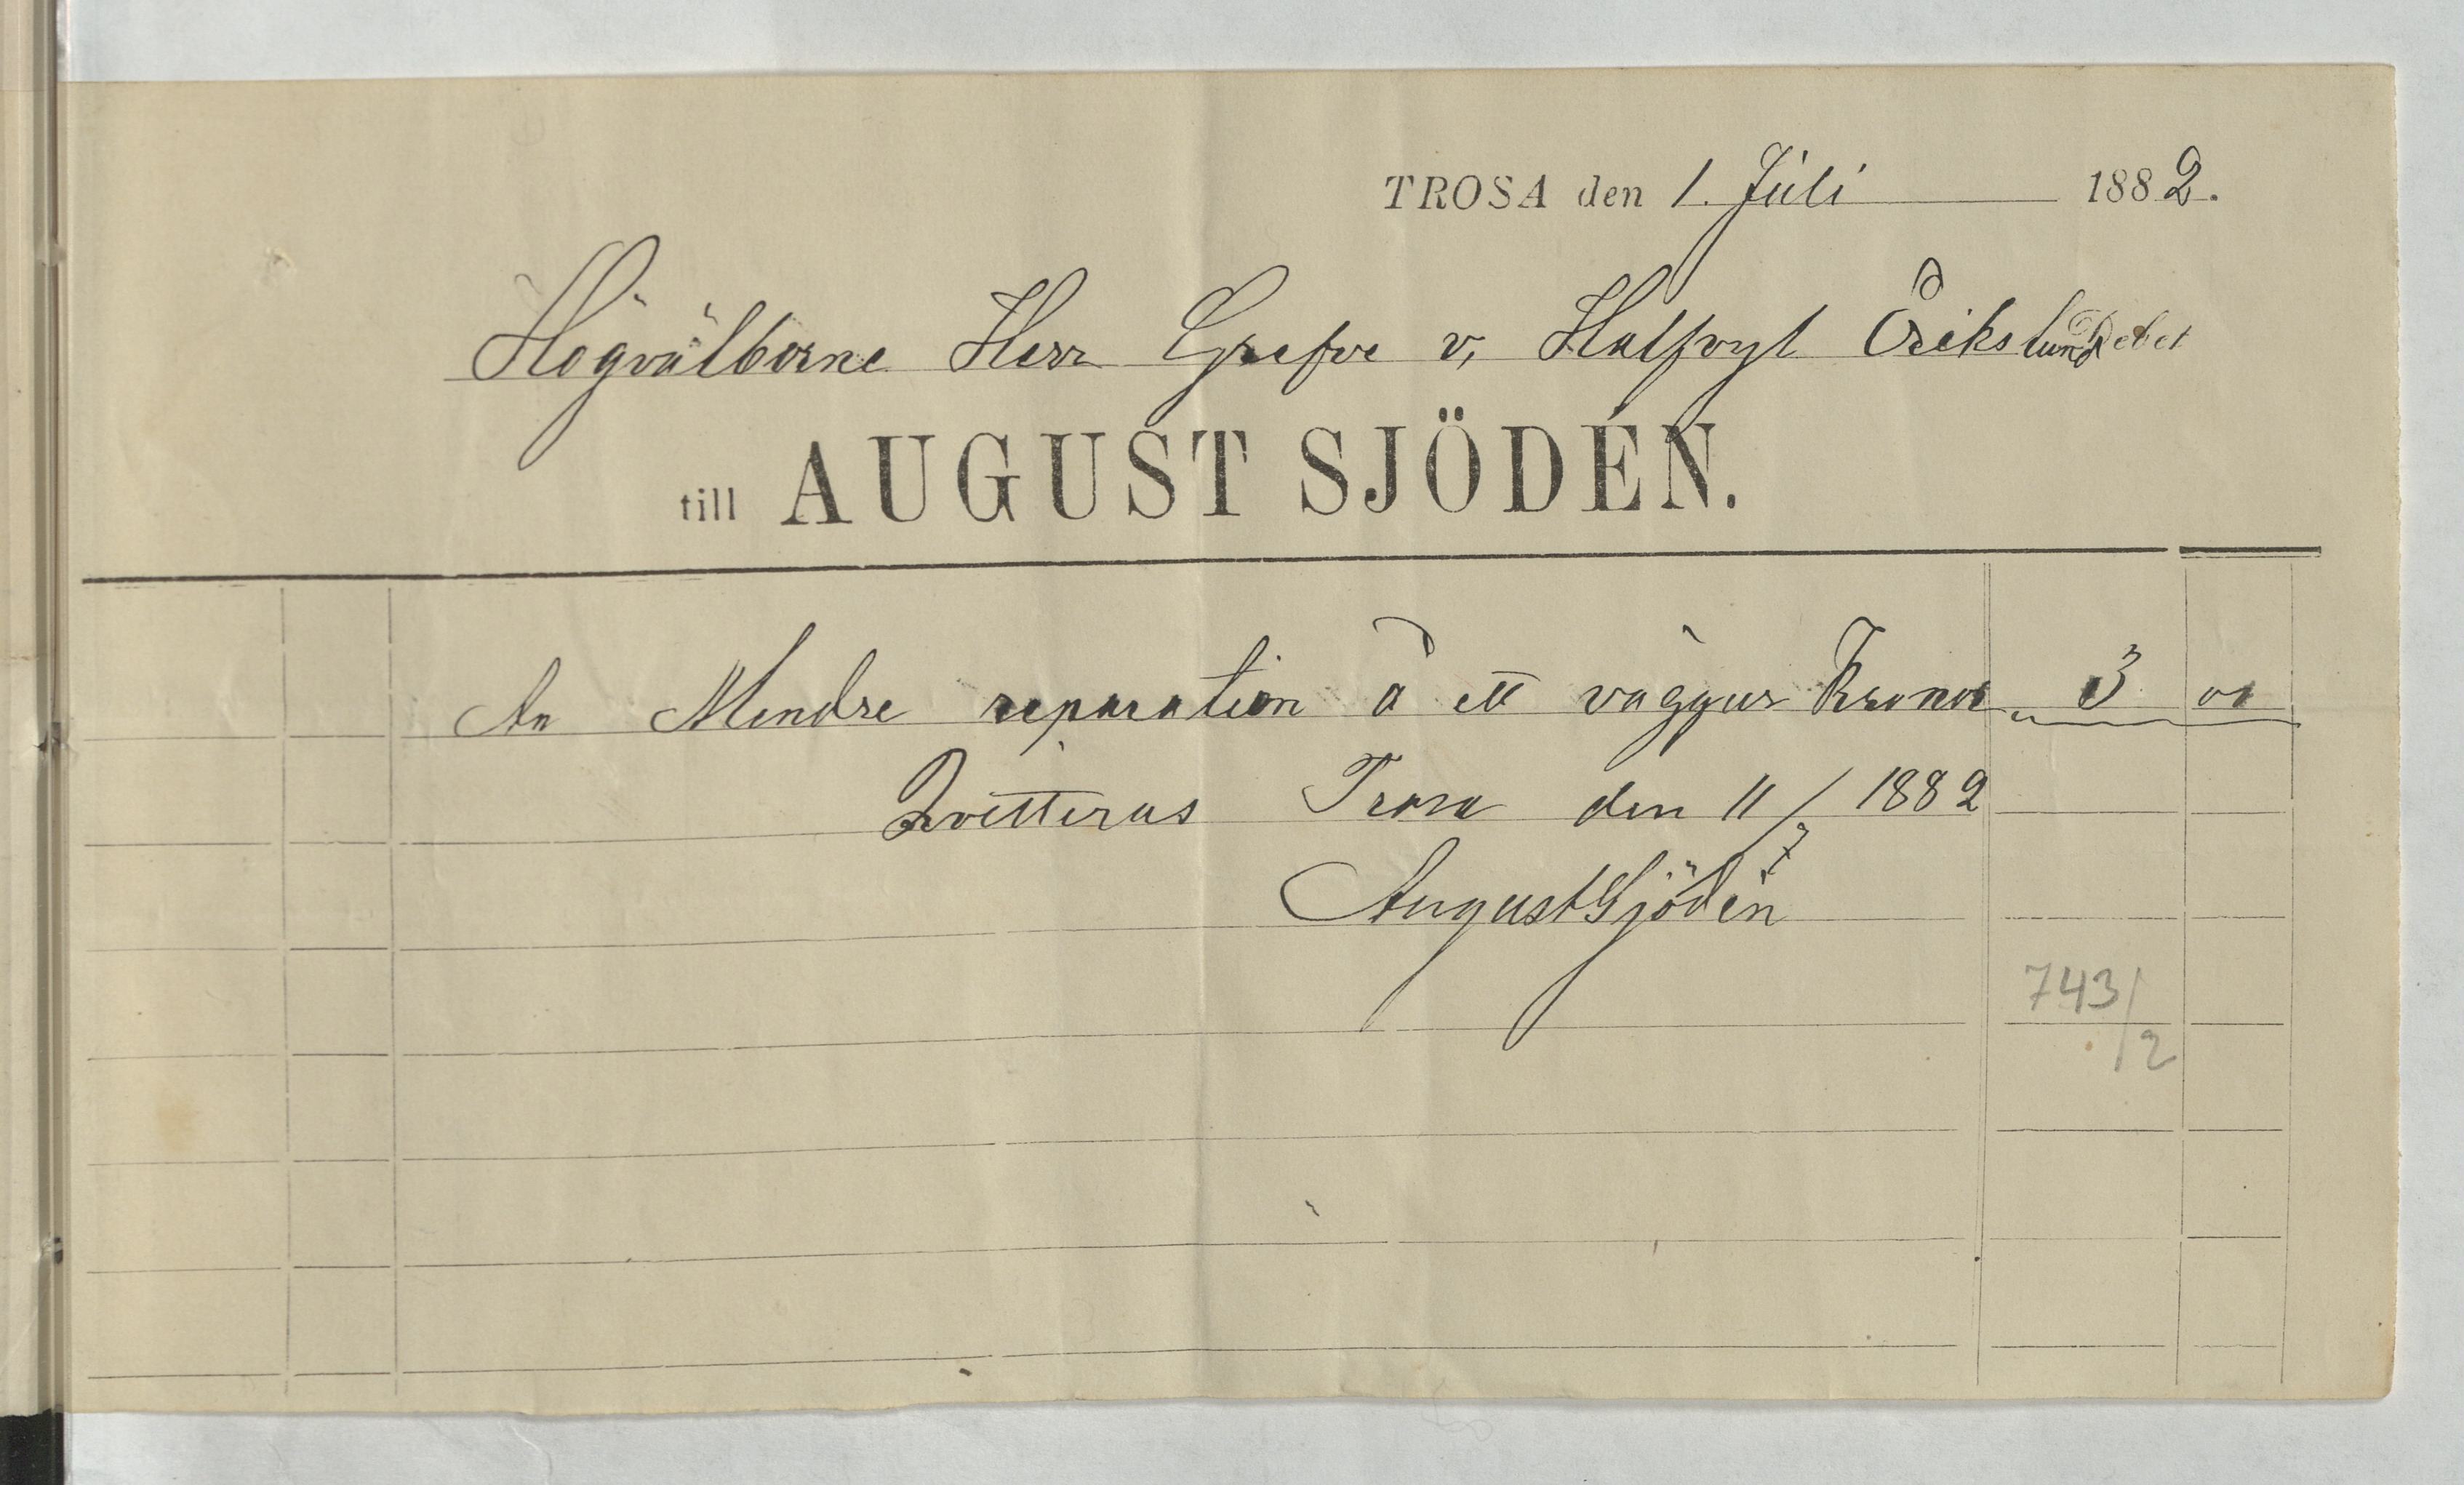 TROSA den 1. Juli 1882.
Högvälborne Herr Grefve v, Hallvyl Erikslund Debet
till AUGUST SJÖDÉN.
An Mindre reparation å ett väggur Kronor „ 3 00
Qvitteras Trosa den 11/7 1882
August Sjödén
743/2